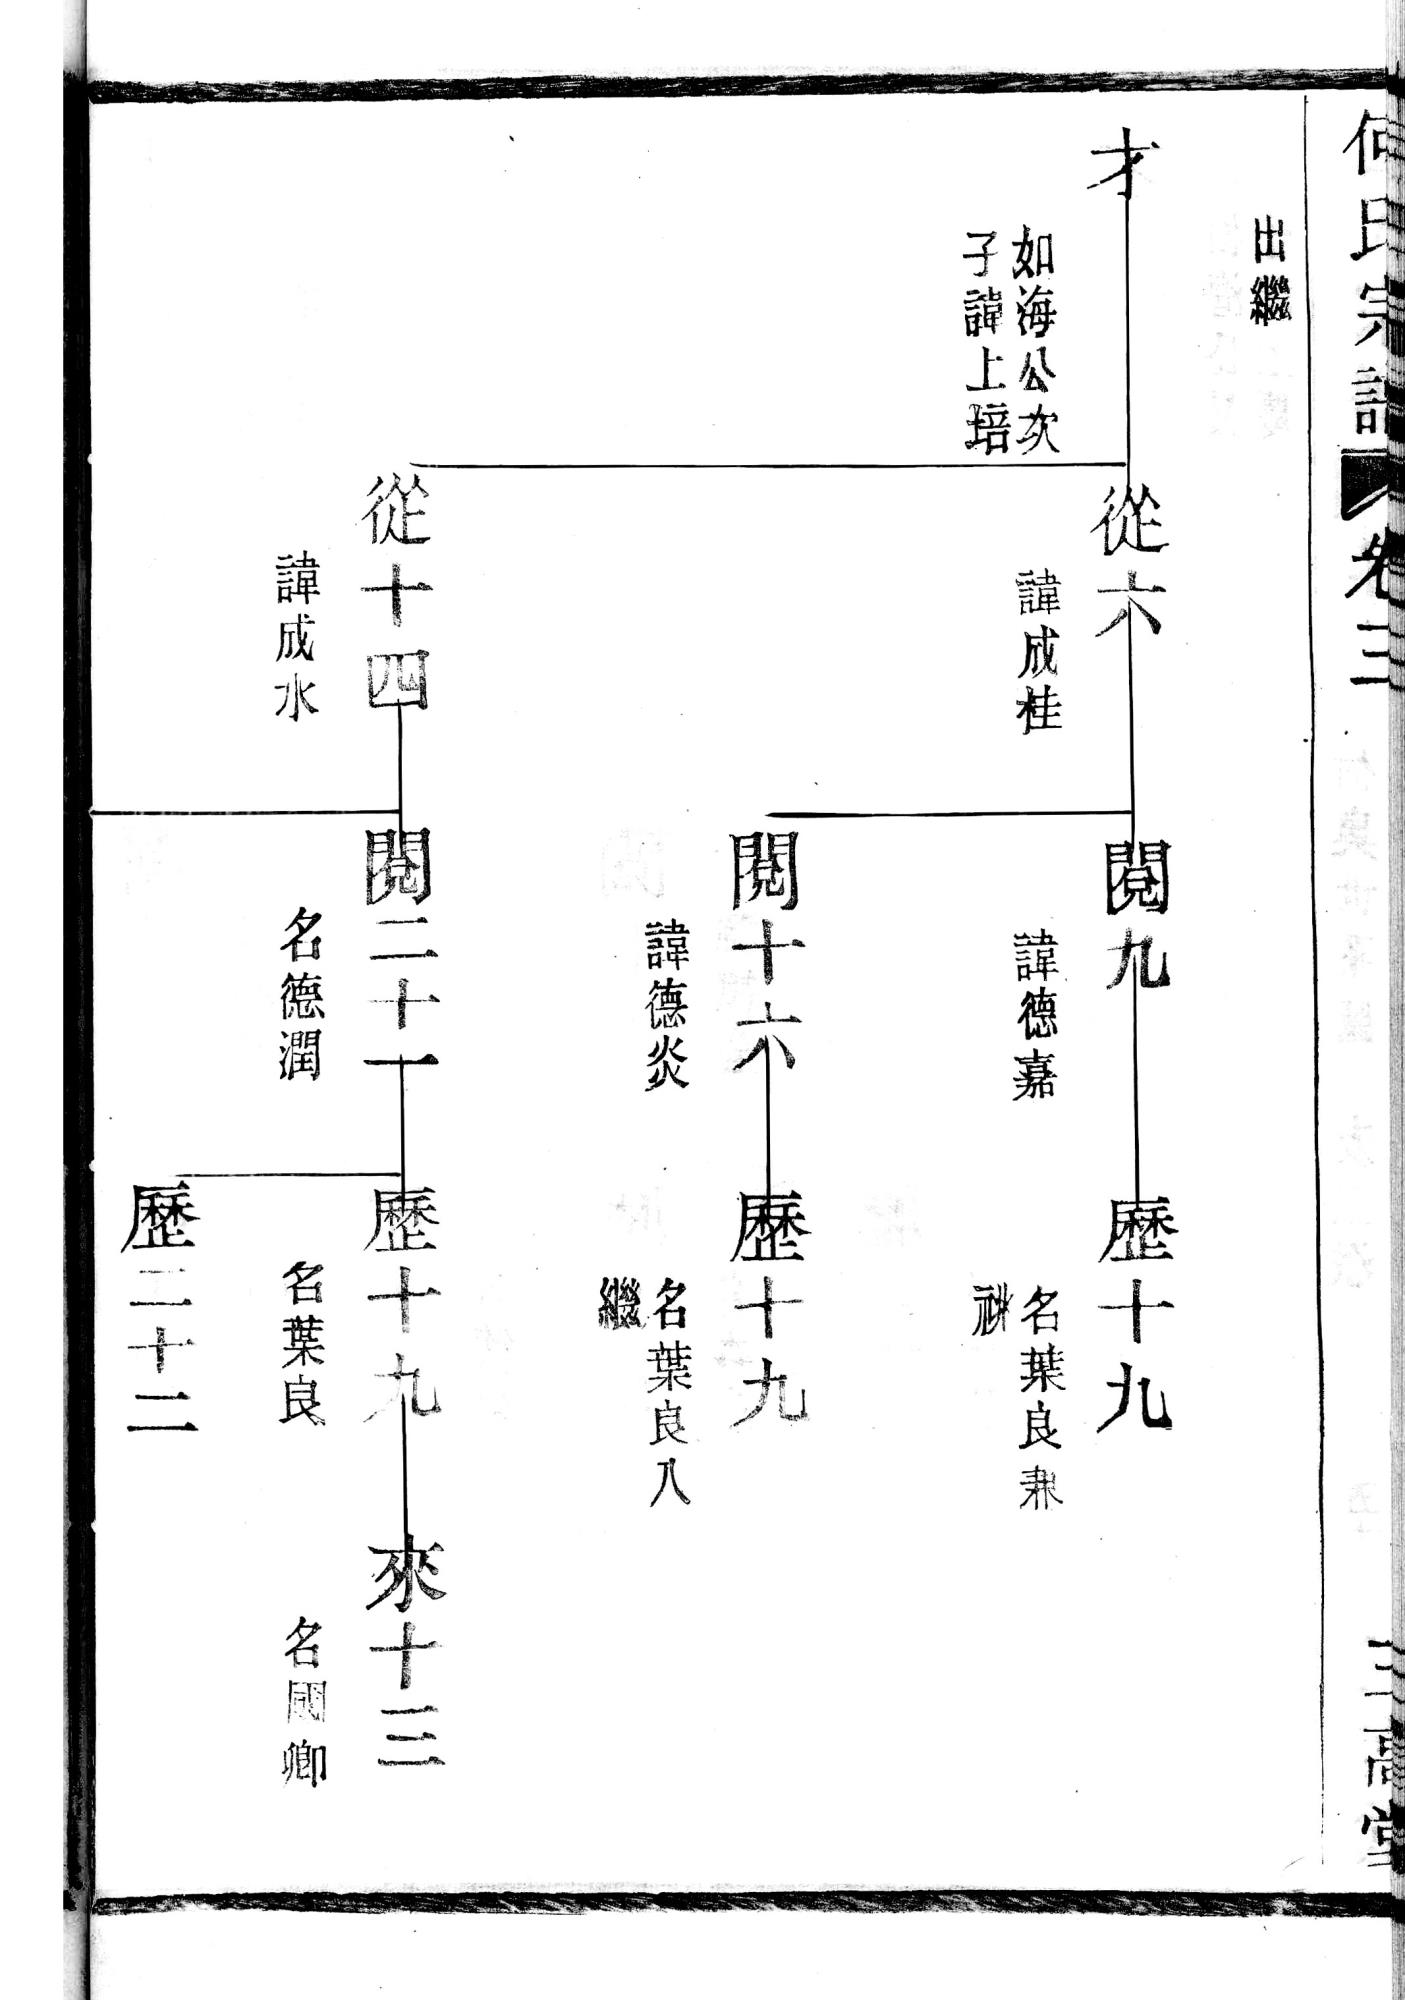 何氏宗譜
卷三
三高堂
出繼
才
如海公次
子諱上培
從六
諱成桂
閱九
諱德嘉
歷十九
名葉良兼
祧
閱十六
諱德炎
歷十九
名葉良入
繼
從十四
諱成水
閱二十一
名德潤
歷十九
名葉良
來十三
名國卿
歷二十二